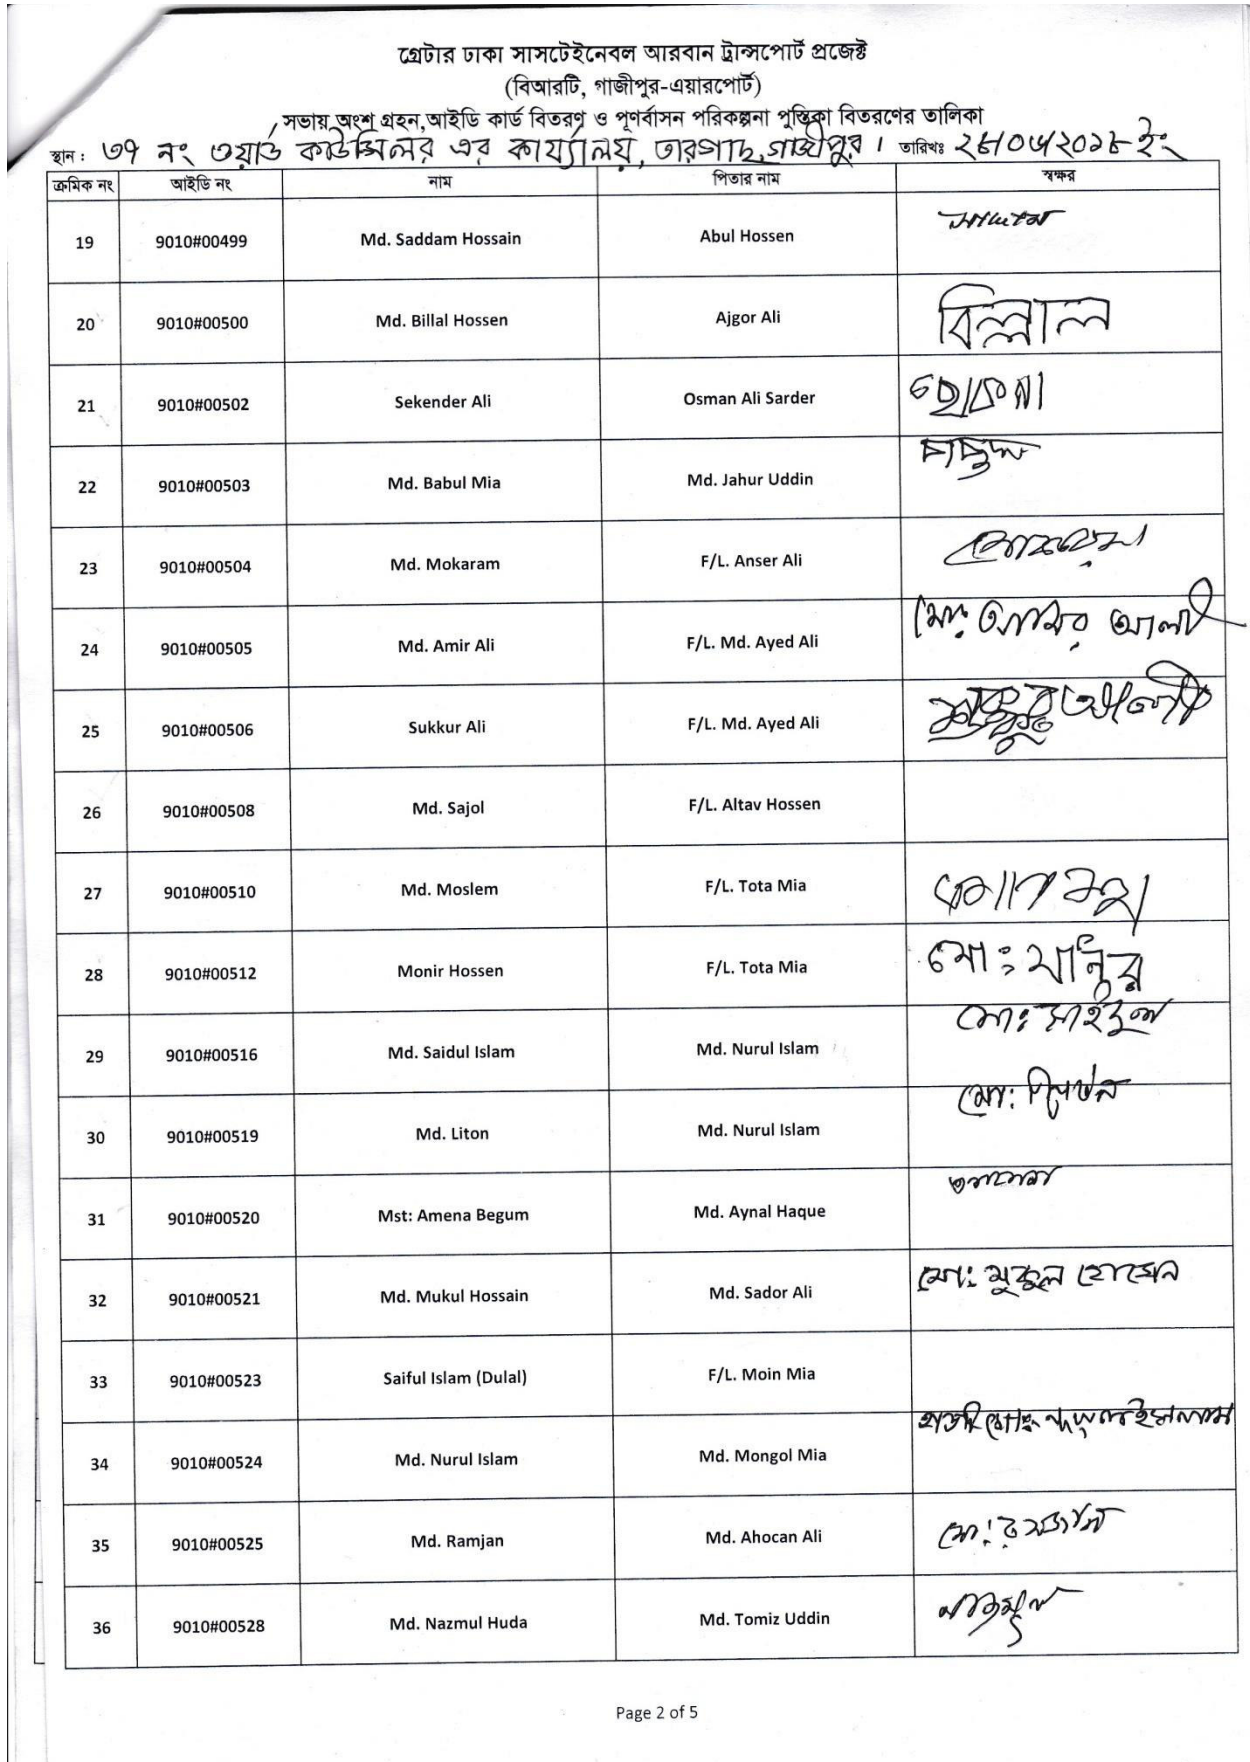 গ্রেটার ঢাকা সাসটেইনেবল আরবান ট্রান্সপোর্ট প্রজেক্ট
(বিআরটি, গাজীপুর-এয়ারপোর্ট)
সভায় অংশ গ্রহন,আইডি কার্ড বিতরণ ও পূণর্বাসন পরিকল্পনা পুস্তিকা বিতরণের তালিকা
স্থান : ৩৭ নং ওয়ার্ড কাউন্সিলর এর কার্য্যালয়, তারগাছ,গাজীপুর । তারিখঃ ইং
ক্রমিক নং আইডি নং নাম পিতার নাম স্বক্ষর
19 9010#00499 Md. Saddam Hossain Abul Hossen
20 9010#00500 Md. Billal Hossen Ajgor Ali বিল্লাল
21 9010#00502 Sekender Ali Osman Ali Sarder
22 9010#00503 Md. Babul Mia Md. Jahur Uddin
23 9010#00504 Md. Mokaram F/L. Anser Ali
24 9010#00505 Md. Amir Ali F/L. Md. Ayed Ali মোঃ আমির আলী
25 9010#00506 Sukkur Ali F/L. Md. Ayed Ali আলী
26 9010#00508 Md. Sajol F/L. Altav Hossen
27 9010#00510 Md. Moslem F/L. Tota Mia
28 9010#00512 Monir Hossen F/L. Tota Mia মোঃ মনির
29 9010#00516 Md. Saidul Islam Md. Nurul Islam মোঃ সাইদুল
30 9010#00519 Md. Liton Md. Nurul Islam মোঃ লিটন
31 9010#00520 Mst: Amena Begum Md. Aynal Haque আমেনা
32 9010#00521 Md. Mukul Hossain Md. Sador Ali মোঃ মুকুল হোসেন
33 9010#00523 Saiful Islam (Dulal) F/L. Moin Mia
34 9010#00524 Md. Nurul Islam Md. Mongol Mia হাজী মোঃ নুরুল ইসলাম
35 9010#00525 Md. Ramjan Md. Ahocan Ali মোঃ রমজান
36 9010#00528 Md. Nazmul Huda Md. Tomiz Uddin নাজমুল
Page 2 of 5